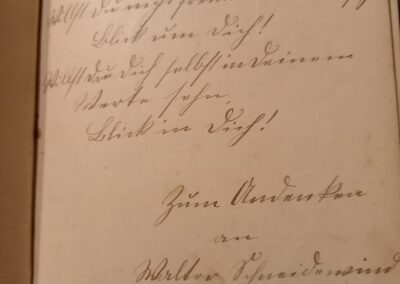 Willst Du
Blick um Dich!
Willst du Dich selbst in Deinem
Werte sehn,
Blick in Dich!
Zum Andenken
an
Walter Schneidewind